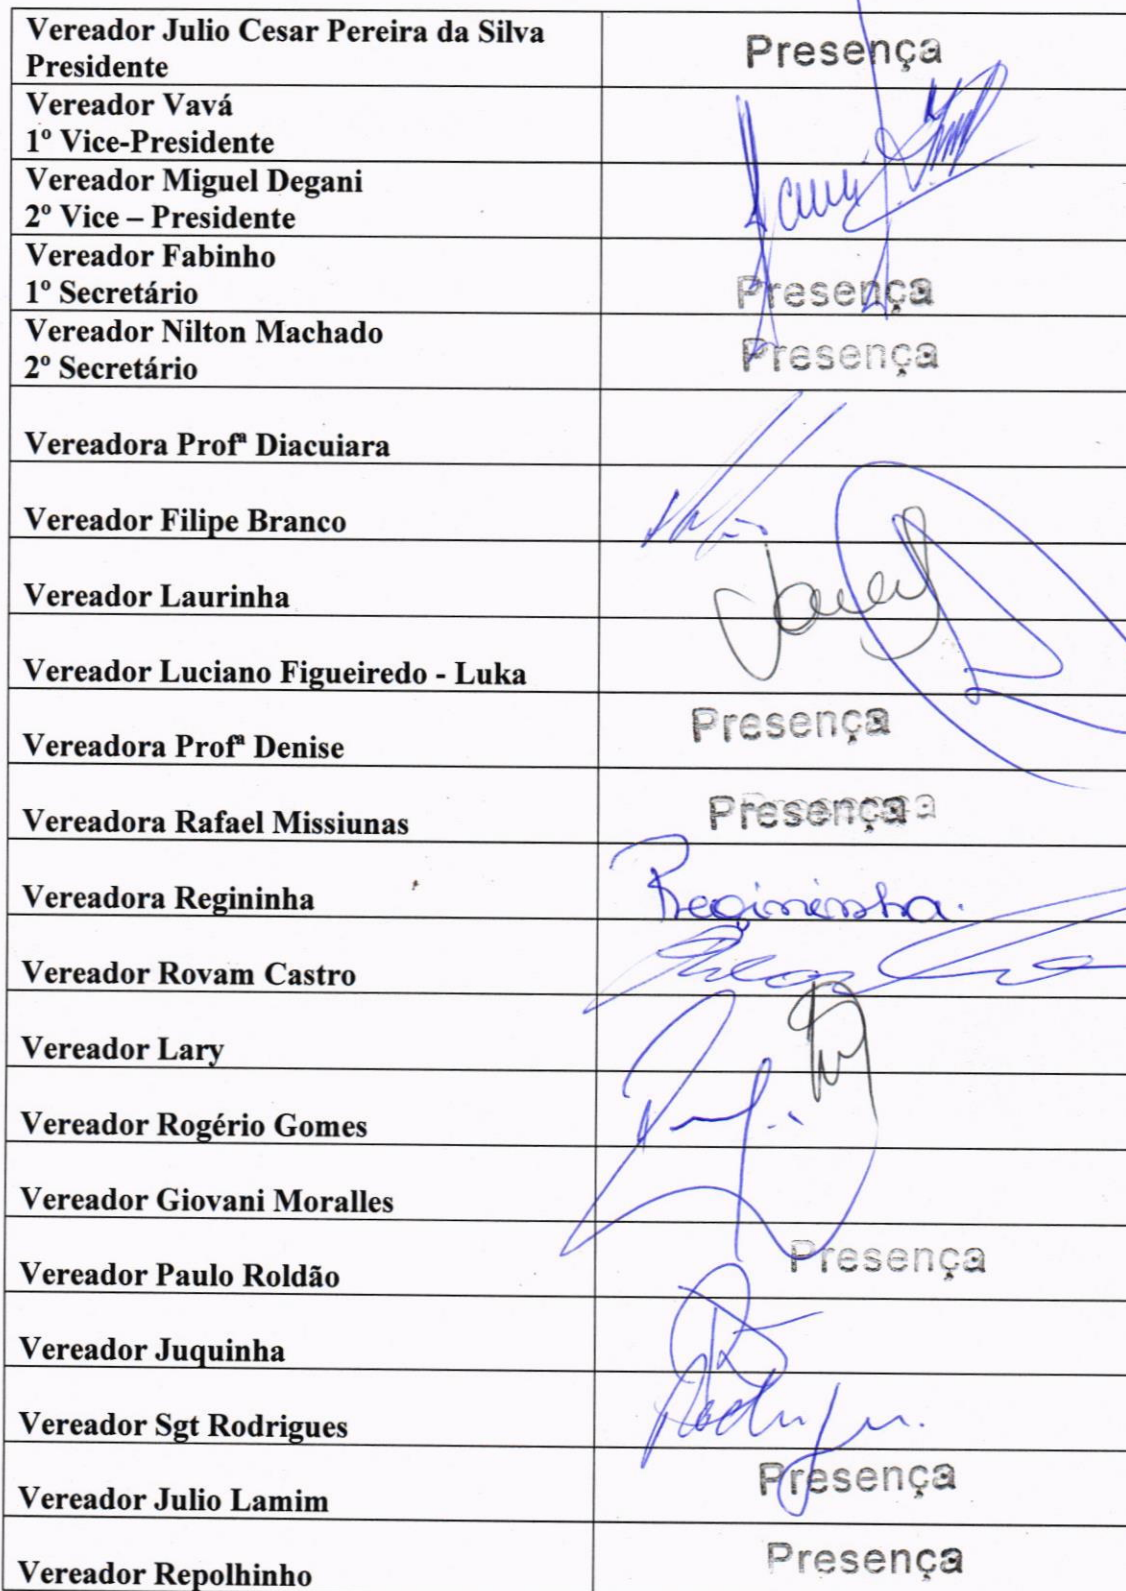 Vereador Julio Cesar Pereira da Silva
Presidente
Presença
Vereador Vavá
1º Vice-Presidente
Vereador Miguel Degani
2º Vice – Presidente
Vereador Fabinho
1º Secretário
Presença
Vereador Nilton Machado
2º Secretário
Presença
Vereadora Profª Diacuiara
Vereador Filipe Branco
Vereador Laurinha
Vereador Luciano Figueiredo - Luka
Vereadora Profª Denise
Presença
Vereadora Rafael Missiunas
Presença
Vereadora Regininha
Regininha.
Vereador Rovam Castro
Vereador Lary
Vereador Rogério Gomes
Vereador Giovani Moralles
Vereador Paulo Roldão
Presença
Vereador Juquinha
Vereador Sgt Rodrigues
Vereador Julio Lamim
Presença
Vereador Repolhinho
Presença